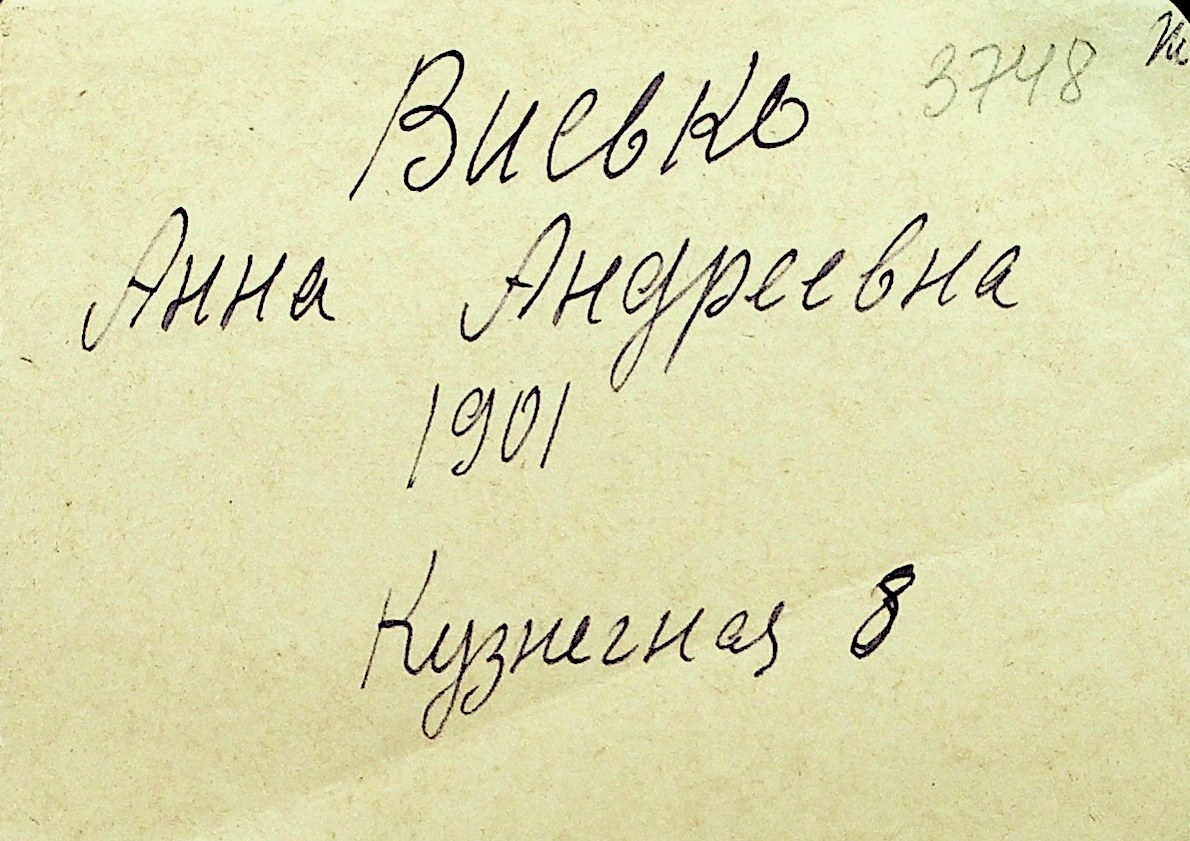 3748
Висько
Анна Андреевна
1901
Кузнечная 8